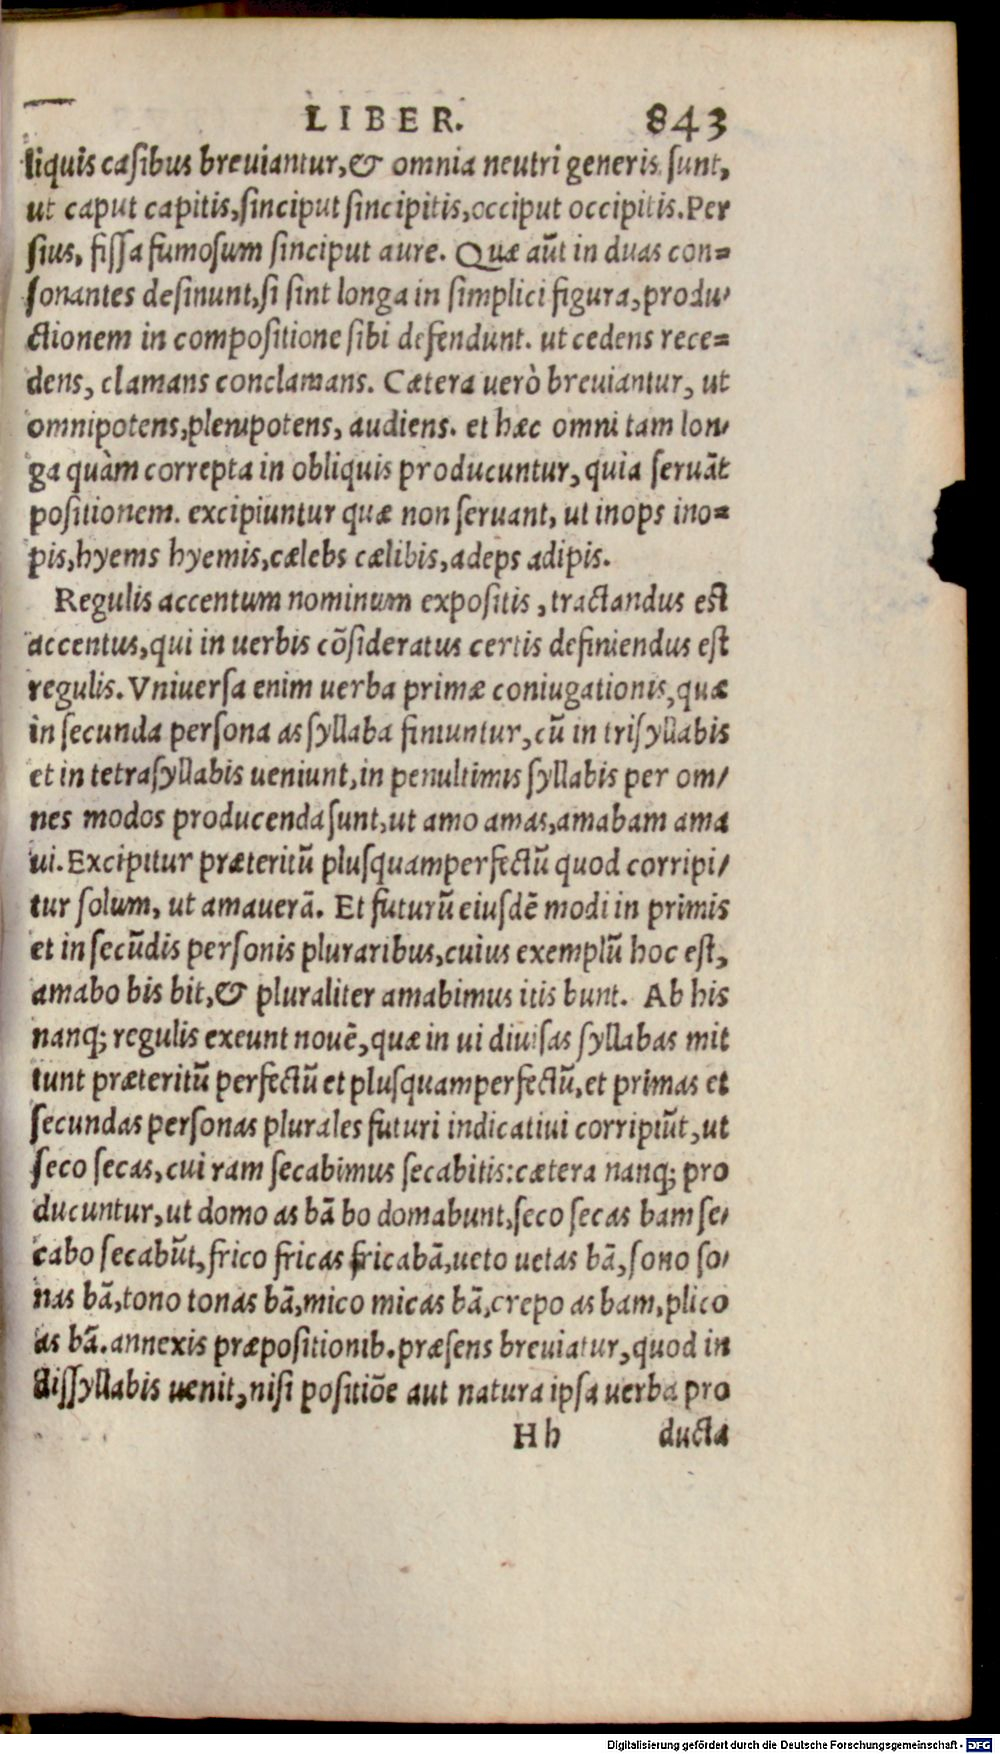 LIBER. 843
liquis casibus breuiantur, & omnia neutri generis sunt,
ut caput capitis, sinciput sincipitis, occiput occipitis. Per
sius, fissa fumosum sinciput aure. Quæ aūt in duas con=
sonantes desinunt, si sint longa in simplici figura, produ/
ctionem in compositione sibi defendunt. ut cedens rece=
dens, clamans conclamans. Cætera uerò breuiantur, ut
omnipotens, plenipotens, audiens. et hæc omni tam lon/
ga quàm correpta in obliquis producuntur, quia seruāt
positionem. excipiuntur quæ non seruant, ut inops ino=
pis, hyems hyemis, cælebs cælibis, adeps adipis.
Regulis accentum nominum expositis, tractandus est
accentus, qui in uerbis cōsideratus certis definiendus est
regulis. Vniuersa enim uerba primæ coniugationis, quæ
in secunda persona as syllaba finiuntur, cū in trisyllabis
et in tetrasyllabis ueniunt, in penultimis syllabis per om/
nes modos producenda sunt, ut amo amas, amabam ama
ui. Excipitur præteritū plusquamperfectū quod corripi/
tur solum, ut amauerā. Et futurū eiusdē modi in primis
et in secūdis personis pluraribus, cuius exemplū hoc est,
amabo bis bit, & pluraliter amabimus itis bunt. Ab his
nanq; regulis exeunt nouē, quæ in ui diuisas syllabas mit
tunt præteritū perfectū et plusquamperfectū, et primas et
secundas personas plurales futuri indicatiui corripiūt, ut
seco secas, cui ram secabimus secabitis: cætera nanq; pro
ducuntur, ut domo as bā bo domabunt, seco secas bam se/
cabo secabūt, frico fricas fricabā, ueto uetas bā, sono so/
nas bā, tono tonas bā, mico micas bā, crepo as bam, plico
as bā. annexis præpositionib. præsens breuiatur, quod in
dissyllabis uenit, nisi positiōe aut natura ipsa uerba pro
Hh ducta
Digitalisierung gefördert durch die Deutsche Forschungsgemeinschaft - DFG